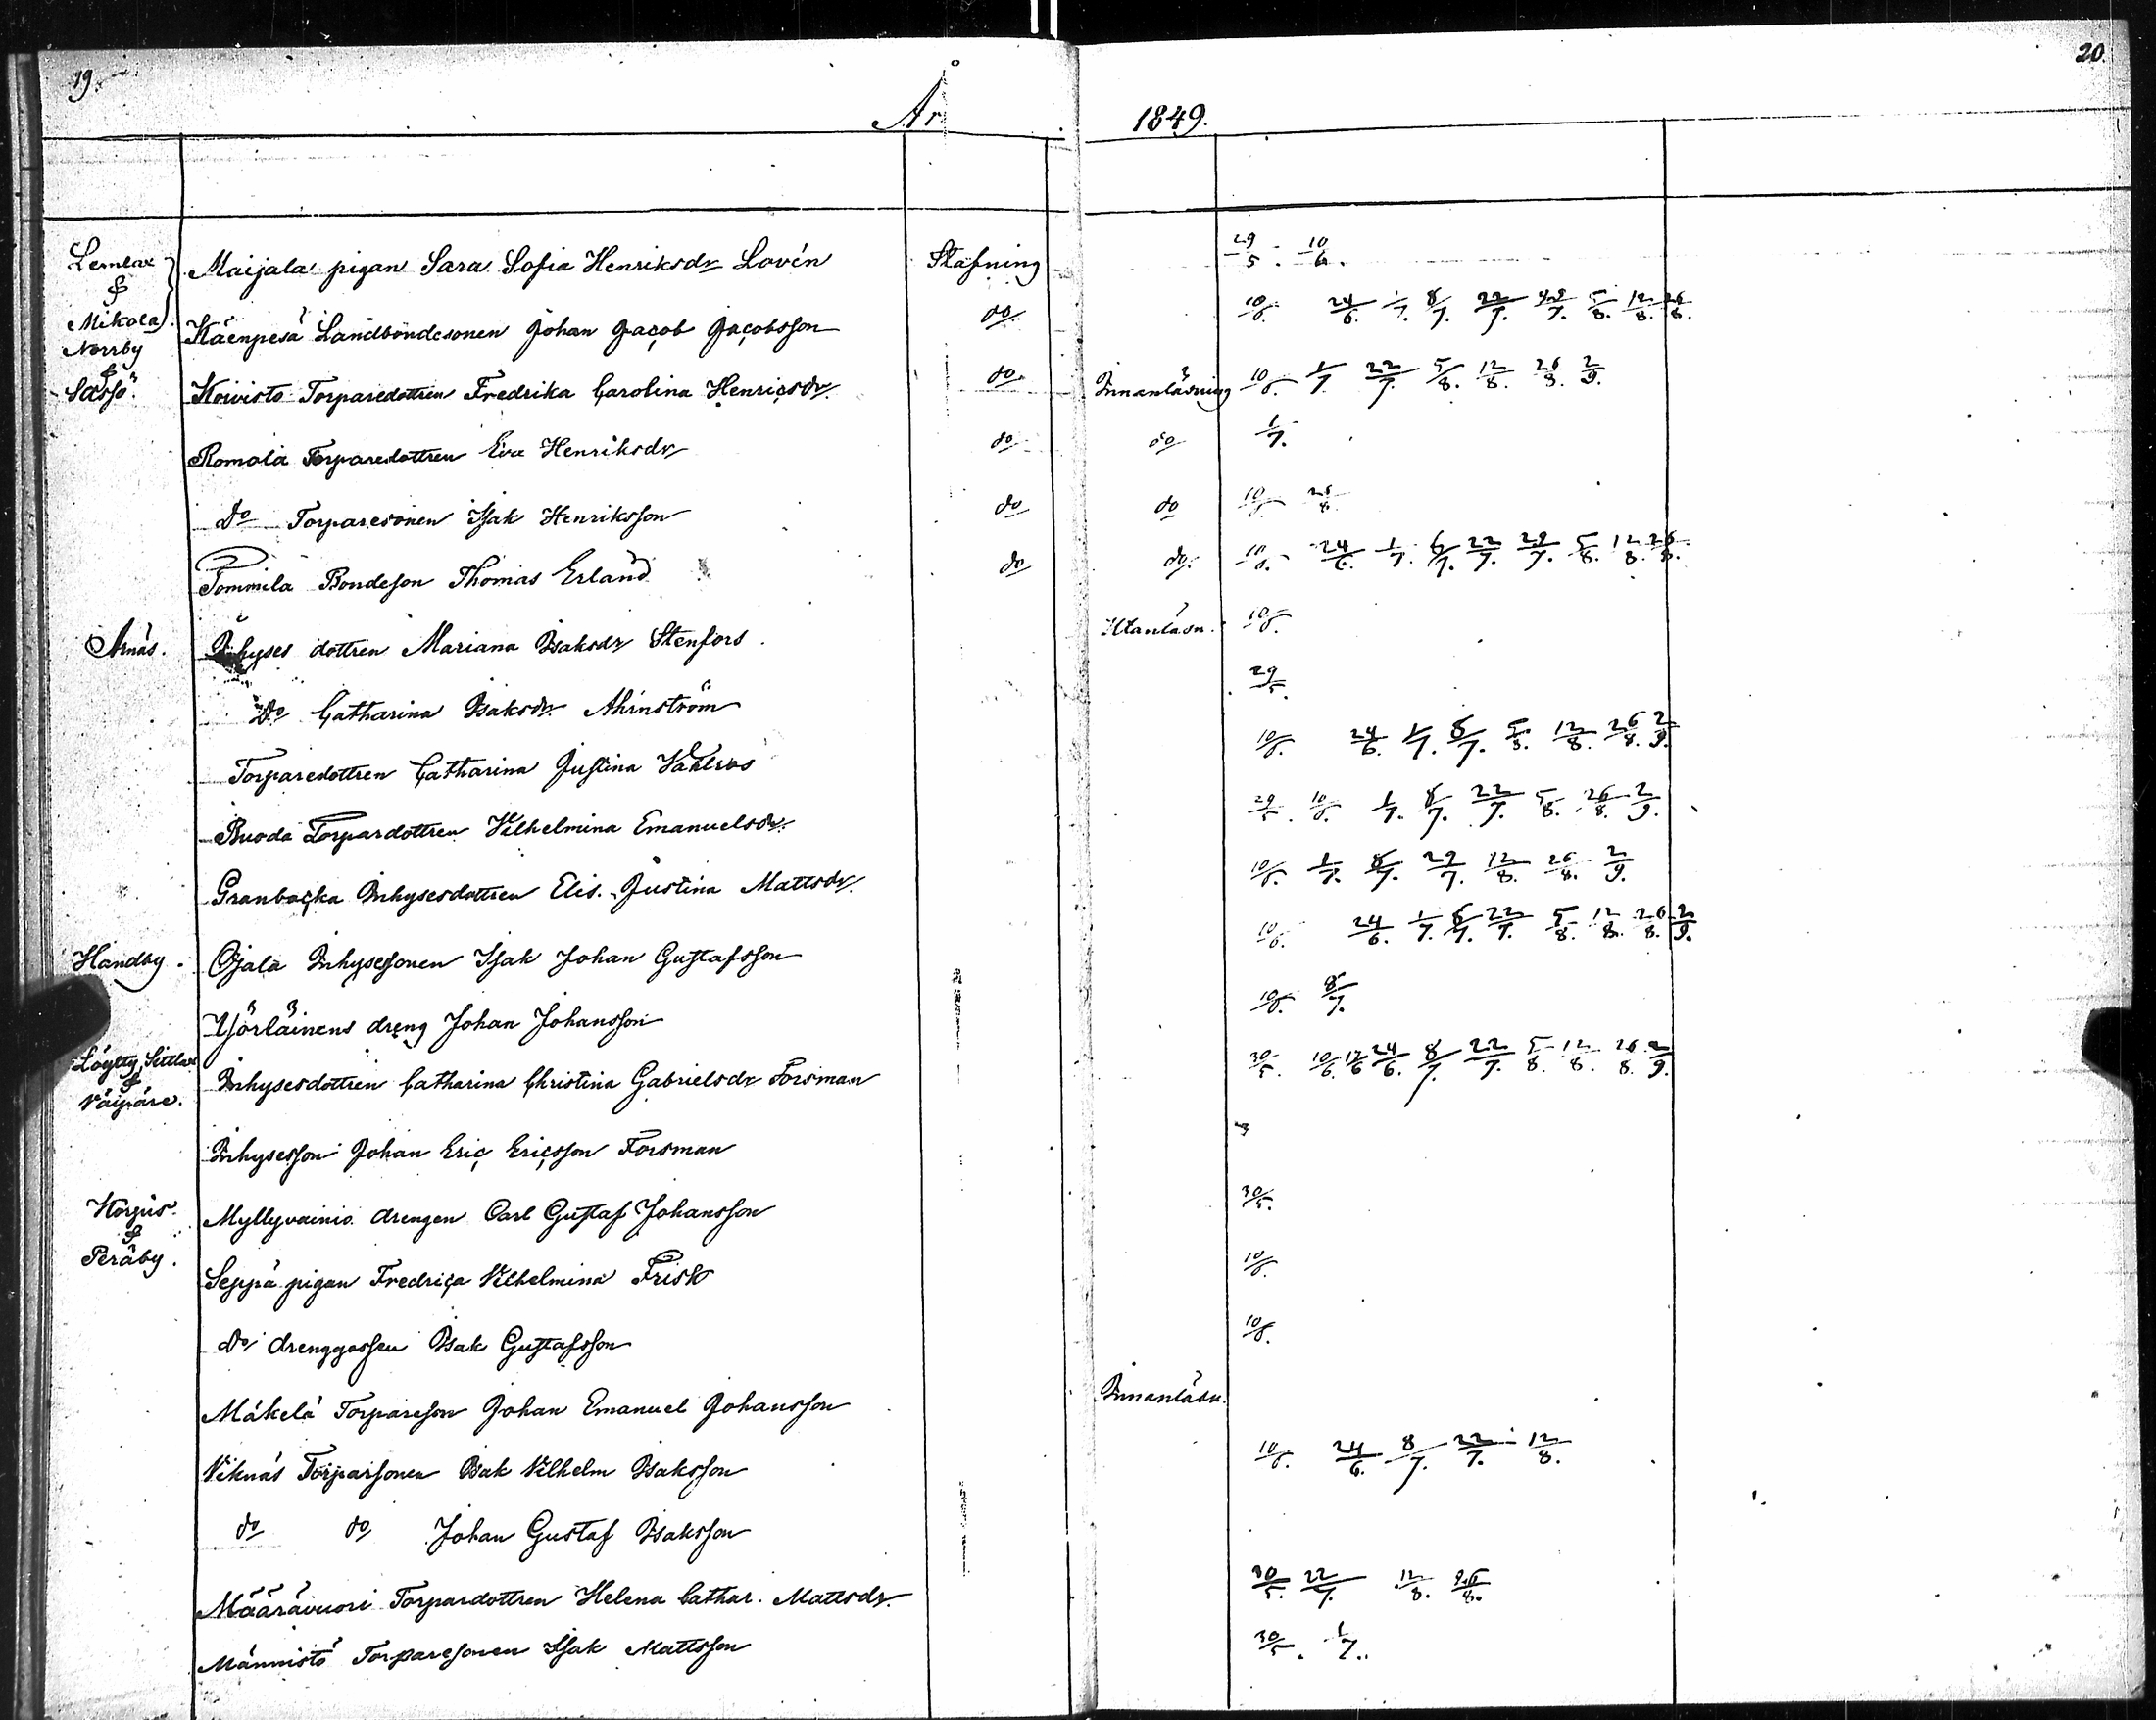 19.
20.
År 1849.
Lemlax & Mikola. Maijala pigan Sara Sofia Henriksdr Lovén Stafning 29/5. 10/6.
Norrby & Sassö. Käenpesä Landbondesonen Johan Jacob Jacobsson do 10/6. 24/6. 1/7. 8/7. 22/7. 29/7. 5/8. 12/8. 26/8.
Koivisto Torparedottren Fredrika Carolina Henricsdr. do Innanläsning 10/6. 1/7. 22/7. 5/8. 12/8. 26/8. 2/9.
Romala Torparedottren Eva Henriksdr do do 1/7.
do Torparesonen Isak Henriksson do do 10/6. 26/8.
Tommila Bondeson Thomas Erland do do. 10/6. 24/6. 1/7. 8/7. 22/7. 29/7. 5/8. 12/8. 26/8.
Arnäs. Inhyses dottren Mariana Isaksdr Stenfors. Utanläsn. 10/6.
do Catharina Isaksdr. Ahrnström 29/5.
Torparedottren Catharina Justina 10/6. 24/6. 1/7. 8/7. 5/8. 12/8. 26/8. 2/9.
Ruoda Torpardottren Vilhelmina Emanuelsdr. 29/5. 10/6. 1/7. 8/7. 22/7. 5/8. 26/8. 2/9.
Granbacka Inhysesdottren Elis. Justina Mattsdr. 10/6. 1/7. 8/7. 22/7. 12/8. 26/8. 2/9.
Handby. Ojala Inhysesonen Isak Johan Gustafsson 10/6. 24/6. 1/7. 8/7. 22/7. 5/8. 12/8. 26/8. 2/9.
Yörläinens dreng Johan Johansson 10/6. 8/7.
Löytty, Settlax & Väipäre. Inhysesdottren Catharina Christina Gabrielsdr Forsman 30/5. 10/6. 17/6. 24/6. 8/7. 22/7. 5/8. 12/8. 26/8. 2/9.
Inhysesson Johan Eric Ericsson Forsman
Korpis & Peräby. Myllyvainio drengen Carl Gustaf Johansson 30/5.
Seppä pigan Fredrica Vilhelmina Frisk 10/6.
do drenggossen Isak Gustafsson 10/6.
Mäkelä Torpareson Johan Emanuel Johansson Innanläsn.
Viknäs Torparsonen Isak Vilhelm Isaksson 10/6. 24/6. 8/7. 22/7. 12/8.
do do Johan Gustaf Isaksson
Määrävuori Torpardottren Helena Cathar. Mattsdr. 30/5. 22/7. 12/8. 26/8.
Männistö Torparesonen Isak Mattsson 30/5. 1/7.